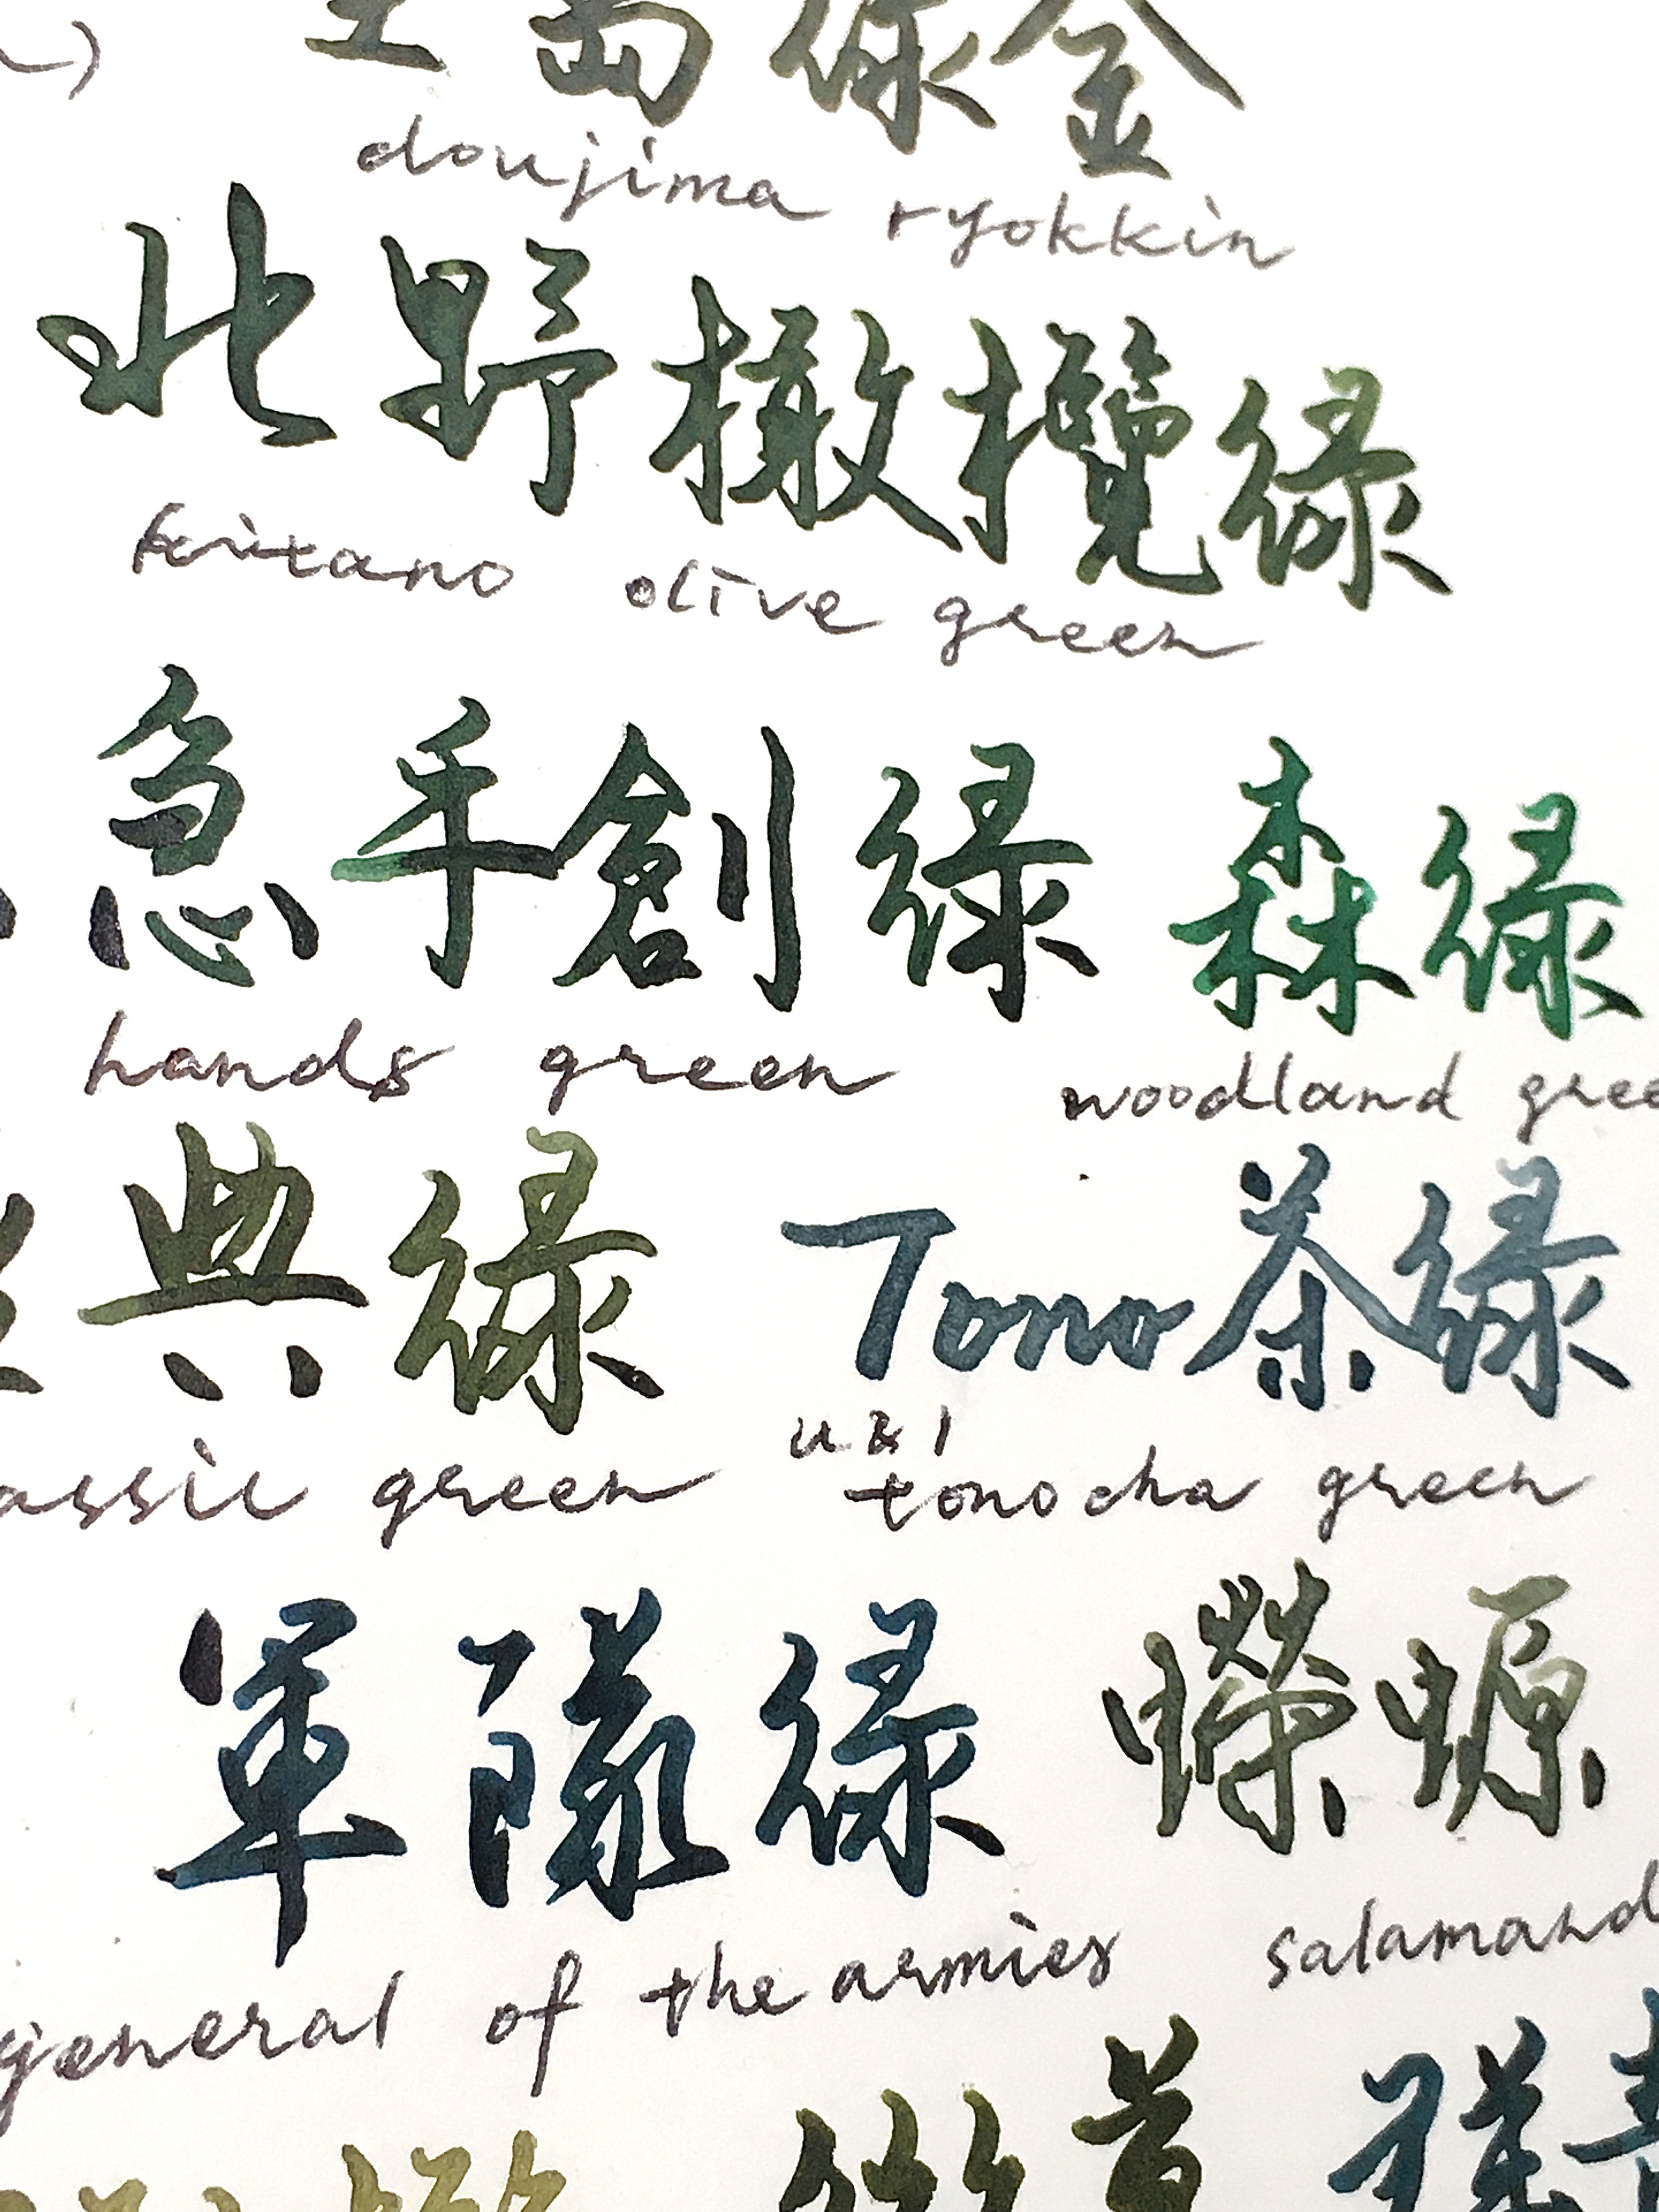 島綠金
doujima ryokkin
北野橄欖綠
kitano olive green
急手創綠 森綠
hands green woodland gree
典綠 Tono茶綠
assic green u&i
tonocha green
軍隊綠 蠑螈
general of the armies salamand